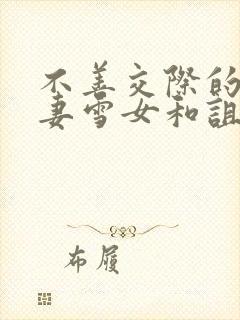 不善交际的
妻雪女和诅
布履